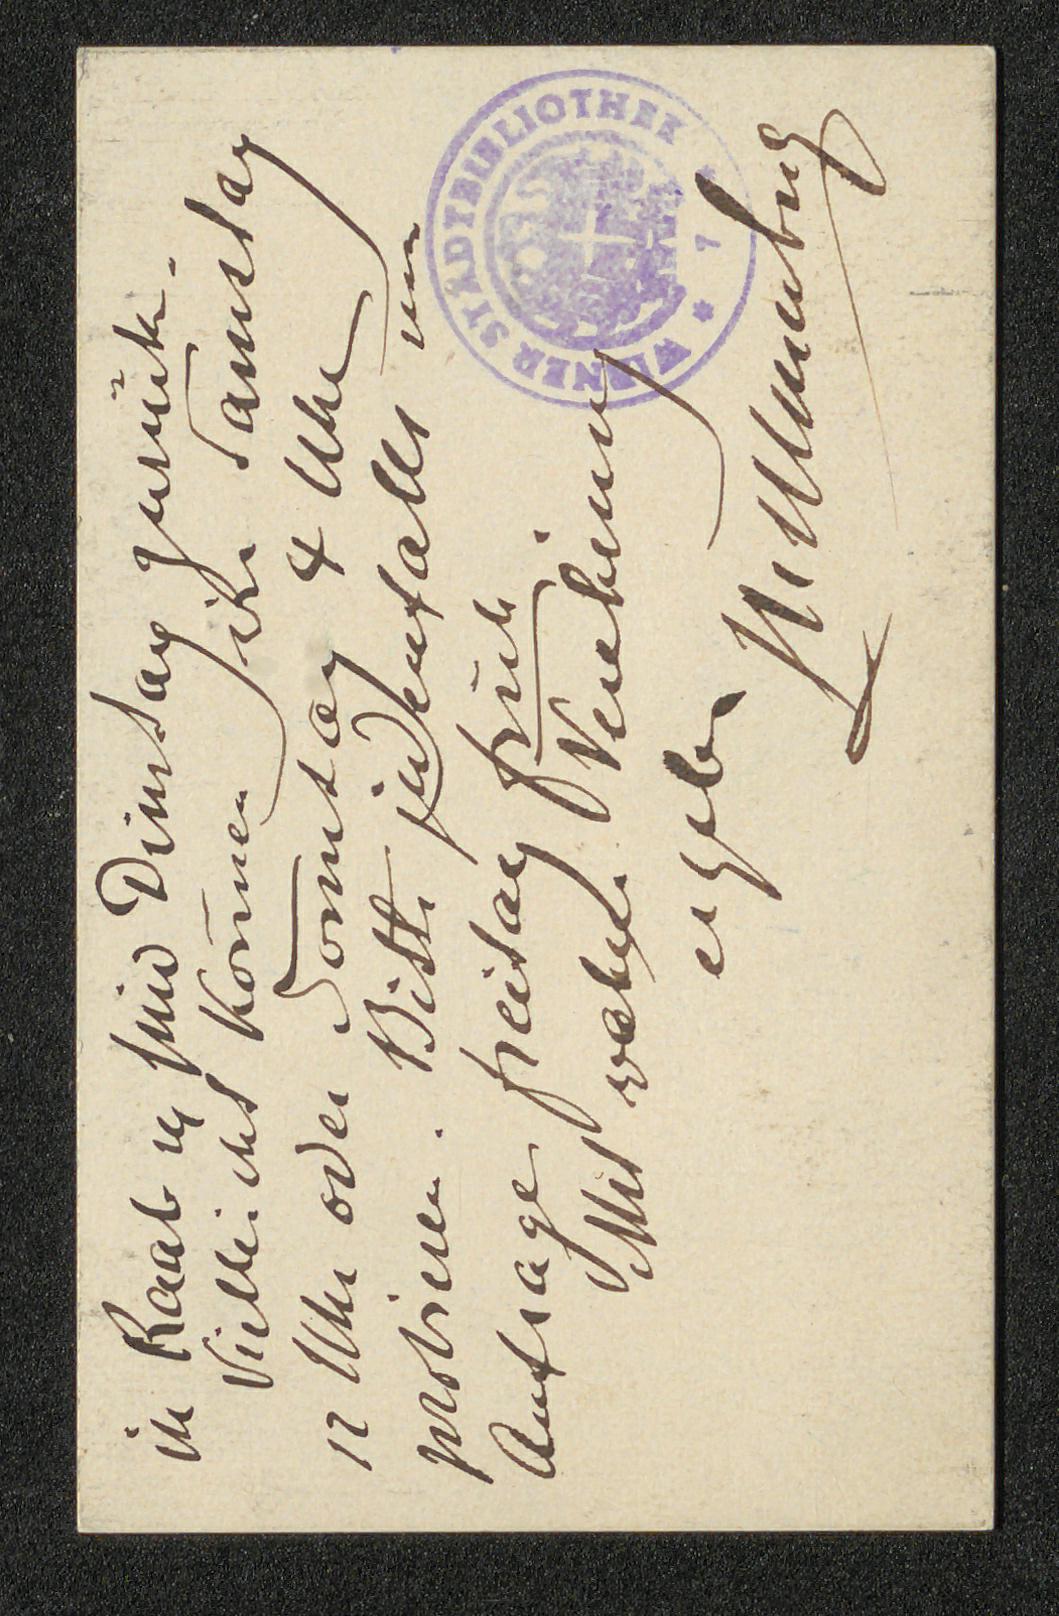 in Raab u sind Dinstag zurük.
Vielleicht können Sie Samstag
12 Uhr oder Sonntag 4 Uhr
probiren. Bitte jedenfalls um
Antrage freitag früh
Mit vorz. Verehrung
ergeb
WIENER STÄDTBIBLIOTHEK * 7 *